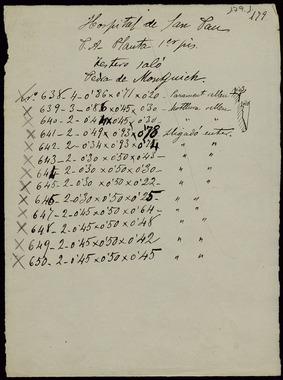 179.
179
Hospital de San Pau
P. A Planta 1er pis.
Testero saló
Pedra de Montjuich.
Nº 638-4-0'36 x 0'71 x 0'20 -
639-3-0'86 x 0'45 x 0'30 -
640-2-0'44 x 0'45 x 0'30 " "
641-2-0'49 x 0'93 x 0'78
642-2-0'34 x 0'93 x 0'74 " "
643-2-0'30 x 0'50 x 0'45 - " "
644-2-0'30 x 0'50 x 0'30 - " "
645-2-0'30 x 0'50 x 0'22 - " "
646-2-0'30 x 0'50 x 0'25 - " "
647-2-0'45 x 0'50 x 0'64 - " "
648-2-0'45 x 0'50 x 0'48 " "
649-2-0'45 x 0'50 x 0'42 " "
650-2-0'45 x 0'50 x 0'45 " "